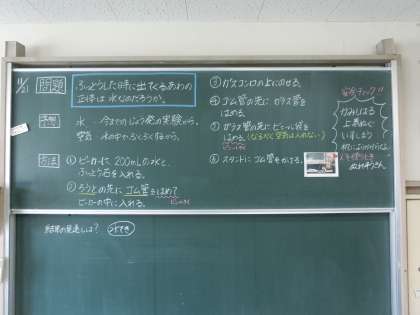 11/21
問題
ふっとうした時に出てくるあわの
正体は水なのだろうか。
予想
水 今までのじょう発の実験から。
空気 水の中からぶくぶく
方法
① ビーカーに、200mLの水と、
ふっとう石を入れる。
② ろうとの先にゴム管をはめて
ビーカーの中に入れる。
③ ガスコンロの上にのせる。
④ ゴム管の先にガラス管を
はめる。
⑤ ガラス管の先にビニール袋を
はめる。(なるべく空気は入れない)
⑥ スタンドにゴム管をかける。
安全チェック!!
かみの毛は
上着ぬぐ
いすしまう
机によりかからない
ぬれぞうきん
結果の見通しは?